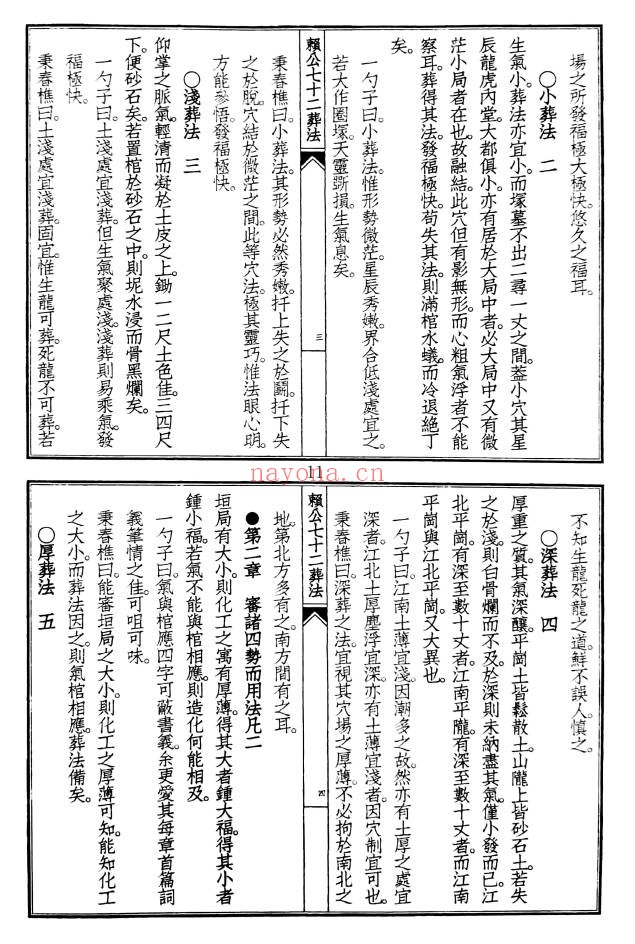 場之所發福極大極快悠久之福耳。
○小葬法　二
生氣小。葬法亦宜小。而塚墓不出二尋一丈之間。葢小穴其星
辰龍虎內堂。大都俱小。亦有居於大局中者。必大局中又有微
茫小局者在也。故融結。此穴但有影無形。而心粗氣浮者不能
察耳。葬得其法。發福極快。苟失其法。則滿棺水蟻。而冷退絶丁
矣。
一勺子曰。小葬法。惟形勢微茫。星辰秀嫩。界合低淺處宜之。
若大作圈塚。天靈斲損。生氣息矣。
賴公七十二葬法
三
秉春樵曰。小葬法。其形勢必然秀嫩。扦上失之於鬭。扦下失
之於脫。穴結於微茫之間。此等穴法。極其靈巧。惟法眼心明。
方能參悟。發福極快。
○淺葬法　三
仰掌之脈氣。輕清而凝於土皮之上。鋤一二尺土色佳。三四尺
下。便砂石矣。若置棺於砂石之中。則坭水浸而骨黑爛矣。
一勺子曰。土淺處宜淺葬。但生氣聚處淺。淺葬則易乘氣。發
福極快。
秉春樵曰。土淺處宜淺葬。固宜。惟生龍可葬。死龍不可葬。若
11
nayona.cn
不知生龍死龍之道。鮮不誤人。慎之。
○深葬法　四
厚重之質。其氣深釀。平岡土皆鬆散土。山隴上皆砂石土。若失
之於淺。則白骨爛而不及。於深則未納盡其氣。僅小發而已。江
北平岡。有深至數十丈者。江南平隴。有深至數十丈者。而江南
平岡與江北平岡。又大異也。
一勺子曰。江南土薄宜淺。因潮多之故。然亦有土厚之處宜
深者。江北土厚塵浮宜深。亦有土薄宜淺者。因穴制宜可也。
秉春樵曰。深葬之法。宜視其穴場之厚薄。不必拘於南北之
賴公七十二葬法
四
地。第北方多有之。南方間有之耳。
●第二章　審諸四勢而用法凡二
垣局有大小。則化工之寓有厚薄。得其大者鍾大福。得其小者
鍾小福。若氣不能與棺相應。則造化何能相及。
一勺子曰。氣與棺應四字。可蔽書義。余更愛其每章首篇詞
義筆情之佳。可咀可味。
秉春樵曰。能審垣局之大小。則化工之厚薄可知。能知化工
之大小。而葬法因之。則氣棺相應。葬法備矣。
○厚葬法　五